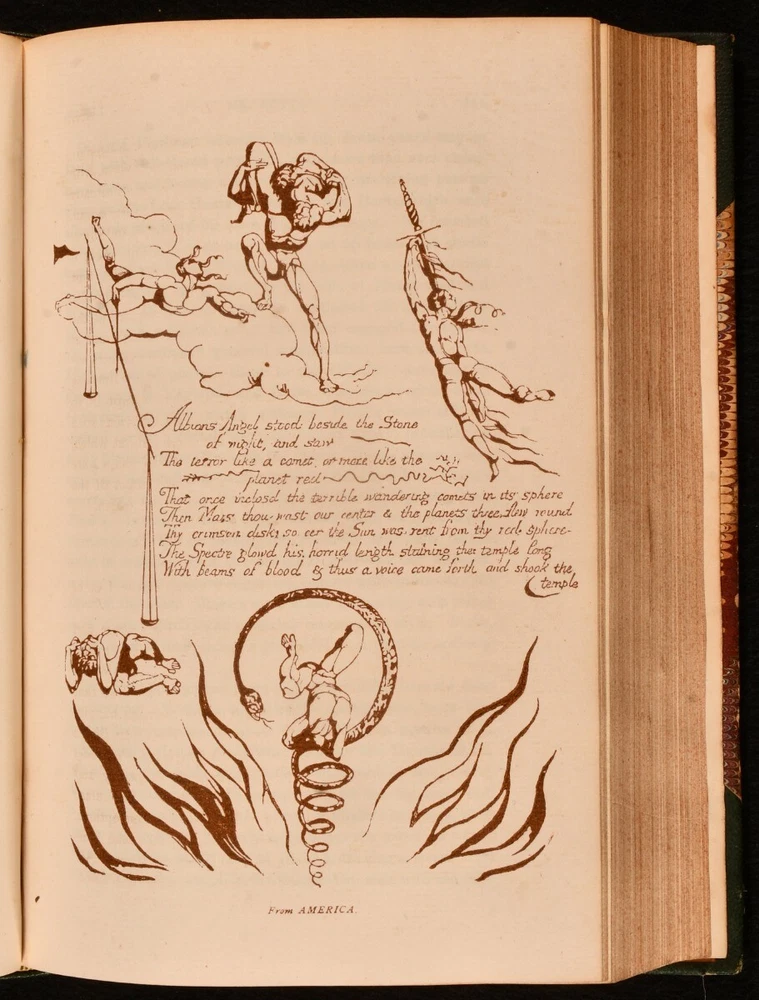 Albions Angel stood beside the Stone
of night, and saw
The terror like a comet, or more like the
planet red
That once inclosd the terrible wandering comets in its sphere
Then Mars thou wast our center & the planets three flew round
Thy crimson disk; so eer the Sun was rent from thy red sphere.
The Spectre glowd his horrid length staining the temple long
With beams of blood & thus a voice came forth and shook the
temple
From AMERICA.